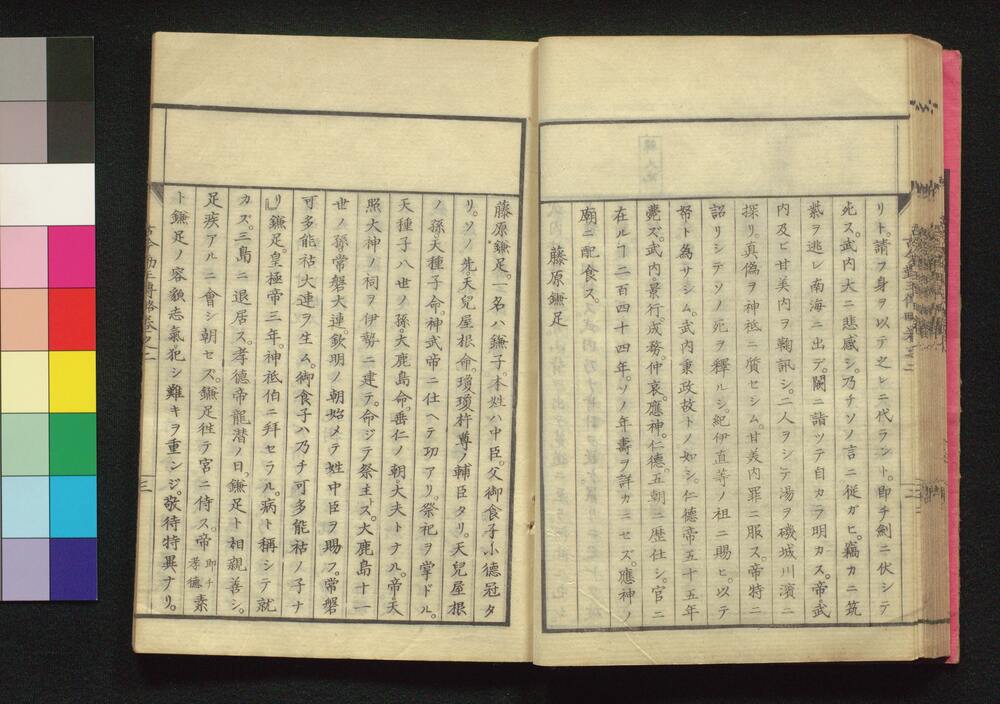 リト。請フ身ヲ以テ之レニ代ラント。即チ劍ニ伏シテ
死ス。武内大ニ悲感シ。乃チソノ言ニ從ガヒ。竊カニ筑
紫ヲ逃レ南海ニ出デ。闕ニ詣ツテ自カラ明カス。帝武
内及ビ甘美内ヲ鞫訊シ。二人ヲシテ湯ヲ磯城川濱ニ
探リ。真偽ヲ神祇ニ質セシム。甘美内罪ニ服ス。帝特ニ
詔リシテソノ死ヲ釋ルシ。紀伊直等ノ祖ニ賜ヒ。以テ
帑ト為サシム。武内秉政故トノ如シ。仁德帝五十五年
薨ズ。武内。景行。成務。仲哀。應神。仁德。五朝ニ歴仕シ。官ニ
在ルヿ二百四十四年。ソノ年壽ヲ詳カニセズ。應神ノ
廟ニ配食ス。
藤原鎌足
藤原鎌足。一名ハ鎌子。本姓ハ中臣。父御食子小德冠タ
リ。ソノ先。天兒屋根命。瓊瓊杵尊ノ輔臣タリ。天兒屋根
ノ孫天種子命。神武帝ニ仕ヘテ功アリ。祭祀ヲ掌ドル。
天種子八世ノ孫。大鹿島命。垂仁ノ朝。大夫トナル。帝天
照大神ノ祠ヲ伊勢ニ建テ。命ジテ祭主トス。大鹿島十一
世ノ孫常磐大連。欽明ノ朝始メテ姓中臣ヲ賜フ。常磐
可多能祜大連ヲ生ム。御食子ハ乃チ可多能祜ノ子ナ
リ』鎌足。皇極帝三年。神祇伯ニ拜セラル。病ト稱シテ就
カズ。三島ニ退居ス。孝德帝龍潛ノ日。鎌足ト相親善シ。
足疾アルニ會シ朝セズ。鎌足徃テ宮ニ侍ス。帝即チ孝德素
ト鎌足ノ容貌志氣。犯シ難キヲ重ンジ。敬待特異ナリ。
三